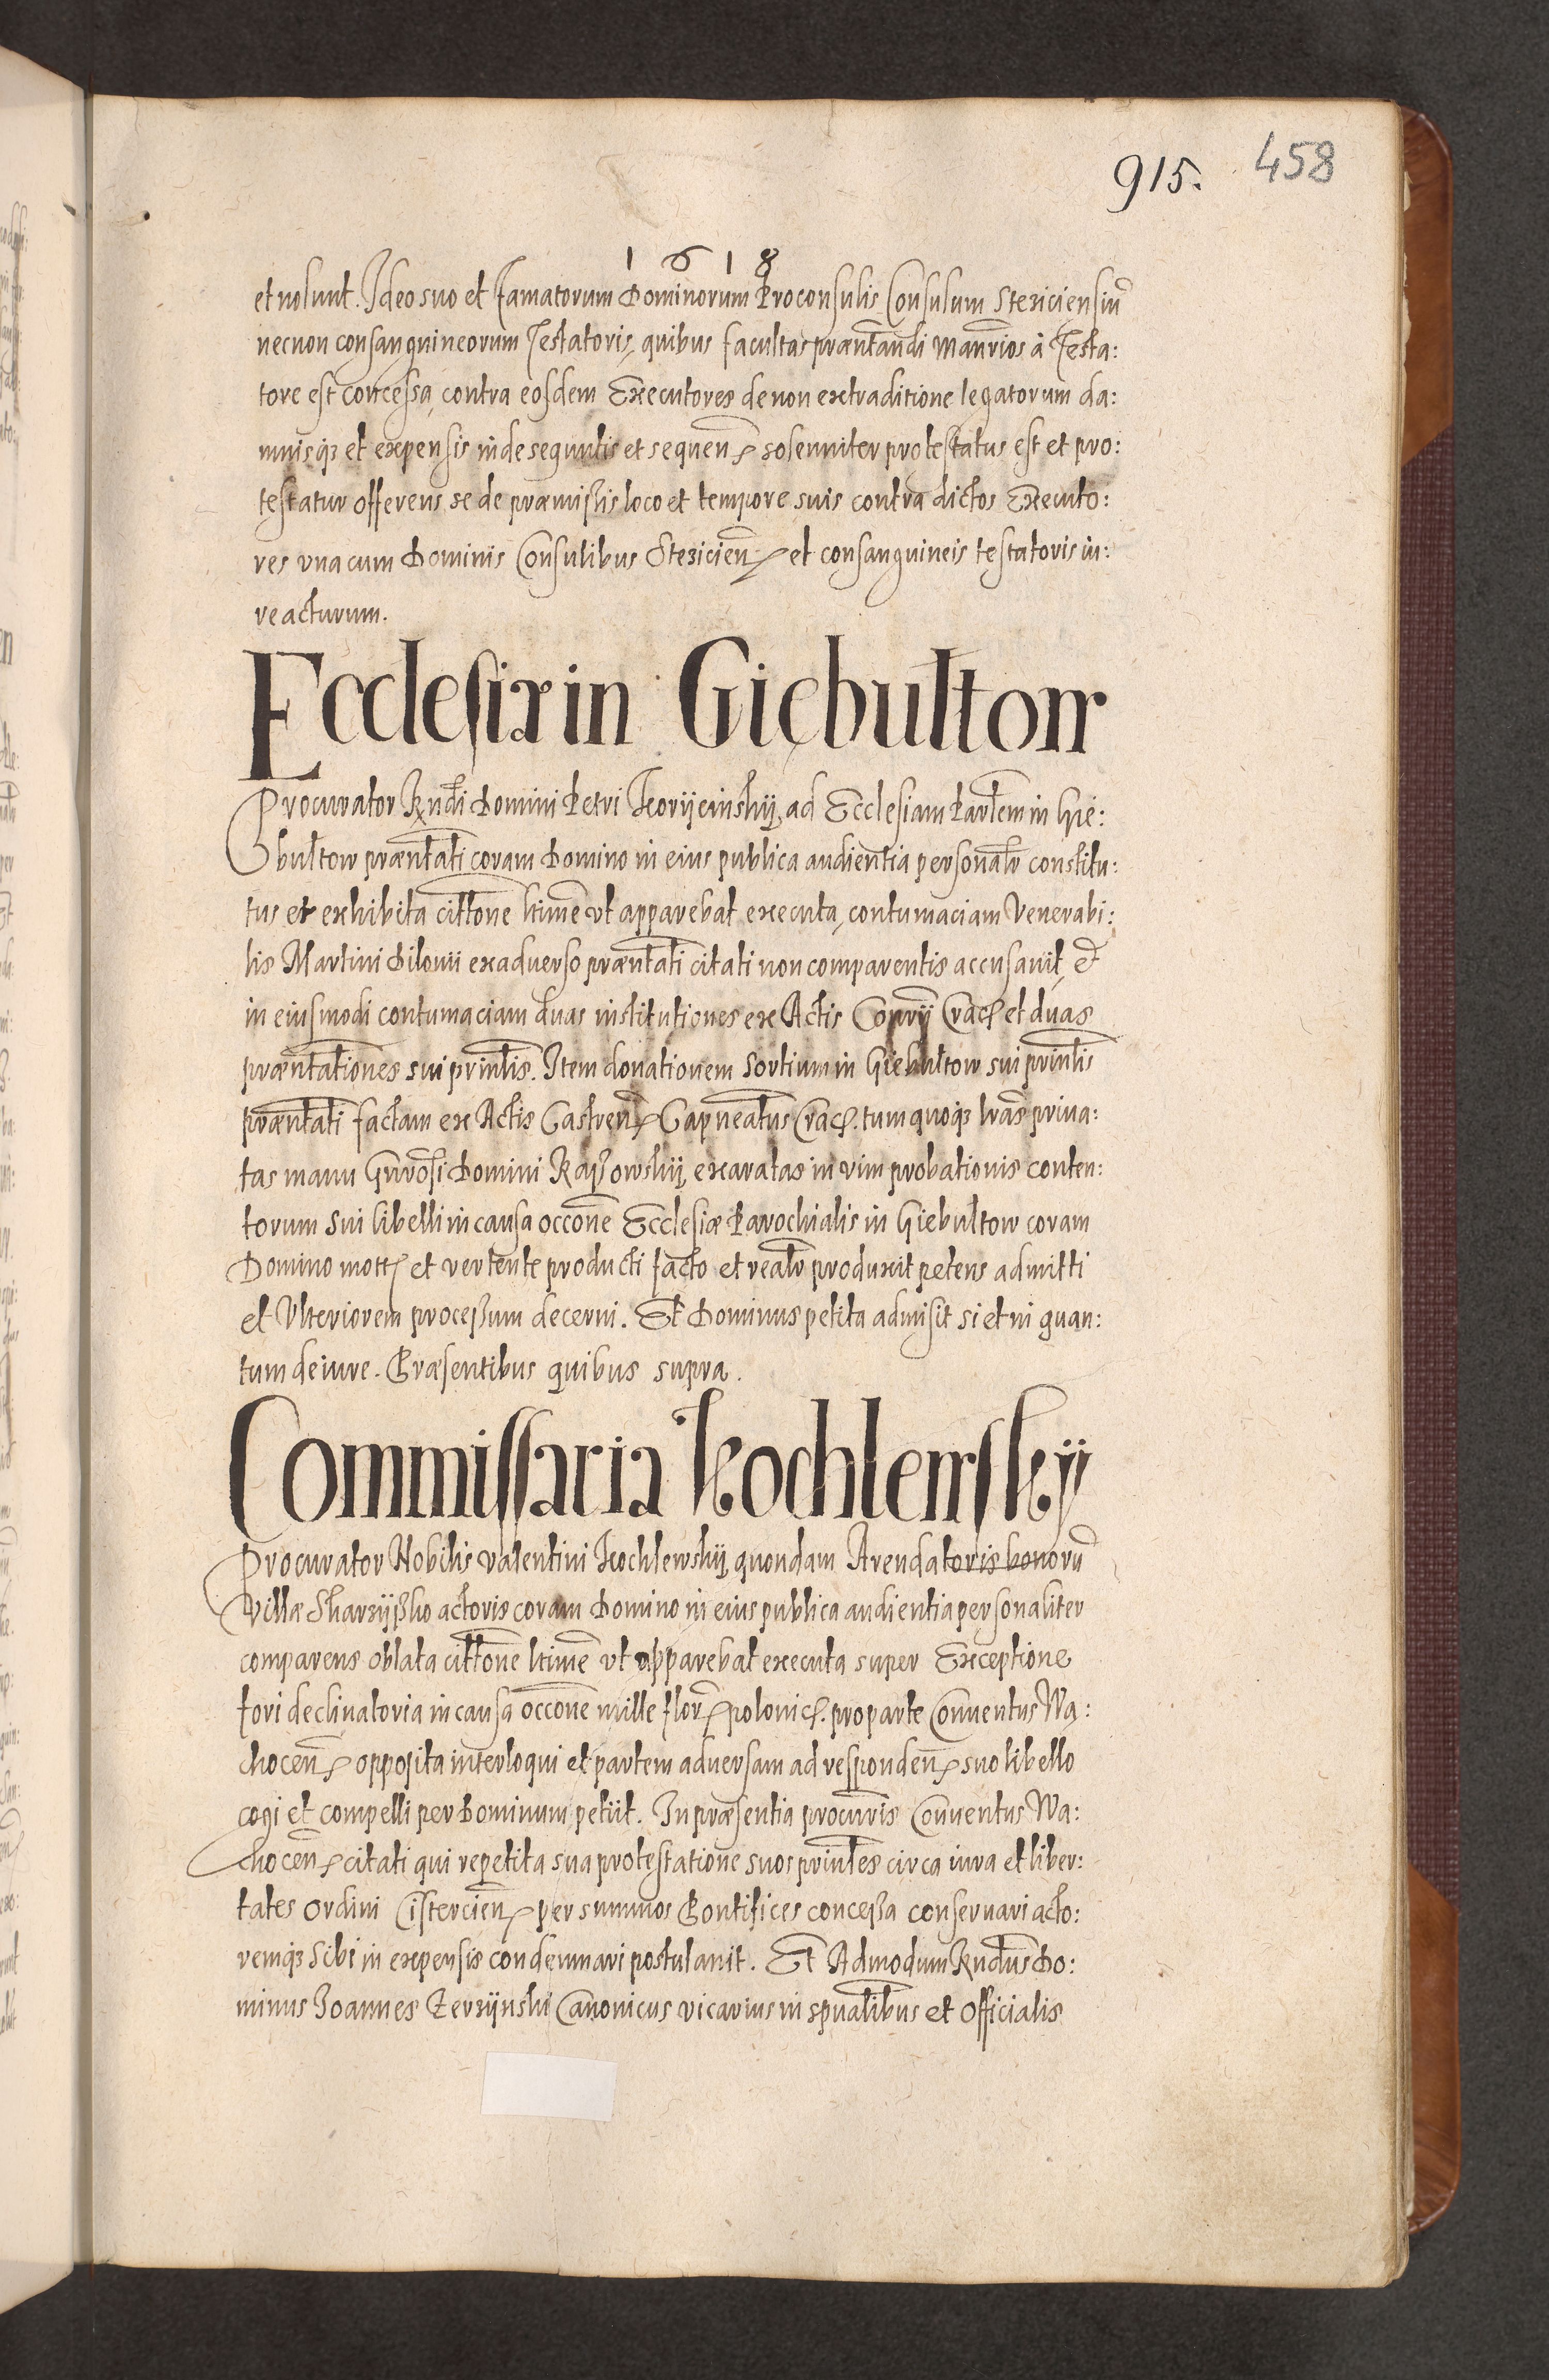 915. 458
1618
et nolunt. Ideo suo et famatorum Dominorum Proconsulis Consulum Stericiensiũ
necnon consanguineorum Testatoris, quibus facultas præntandi Manrios à Testa:
tore est concessa, contra eosdem Executores de non extraditione legatorum da:
mnisq3 et expensis inde sequutis et sequen̄ solenniter protestatus est et pro:
testatur offerens se de præmissis loco et tempore suis contra dictos Executo:
res vna cum Dominis Consulibus Stericien̄ et consanguineis testatoris iu:
re acturum.
Ecclesiæ in Giebułtow
Procurator Rndi Domini Petri Koryciński, ad Ecclesiam Parlem in Gie:
bułtow præntati coram Domino in eius publica audientia personalr constitu:
tus et exhibita cittone ltime vt apparebat executa, contumaciam Venerabi:
lis Martini Dilouii ex aduerso præntati citati non comparentis accusauit, et
in eiusmodi contumaciam duas institutiones ex Actis Conrij Crac. et duas
præntationes sui prinlis. Item donationem Sortium in Giebułtow sui prinlis
præntati factam ex Actis Castren̄ Capneatus Crac. tum quoq3 lras priua:
tas manu Gnrosi Domini Kaszowskij, exaratas in vim probationis conten:
torum sui libelli in causa occone Ecclesiæ Parochialis in Giebułtow coram
Domino mott. et vertente producti facto et realr produxit petens admitti
et Vlteriorem processum decerni. Et Dominus petita admisit si et in quan:
tum de iure. Præsentibus quibus supra.
Commissaria Kochlewskÿ
Procurator Nobilis Valentini Kochlewskij, quondam Arendatoris bonorũ
Villæ Skarzyszko actoris coram Domino in eius publica audientia personaliter
comparens oblata cittone ltime vt apparebat executa super Exceptione
fori declinatoria in causa occone mille flor. polonic. pro parte Conuentus Wą:
chocen̄ opposita interloqui et partem aduersam ad responden̄ suo libello
cogi et compelli per Dominum petiit. In præsentia procuris Conuentus Wą:
chocen̄ citati qui repetita sua protestatione suos prinles circa iura et liber:
tates Ordini Cistercien̄ per summos Pontifices concessa conseruari acto:
remq3 sibi in expensis condemnari postulauit. Et Admodum Rndus Do:
minus Joannes Zerzyński Canonicus vicarius in spualibus et Officialis